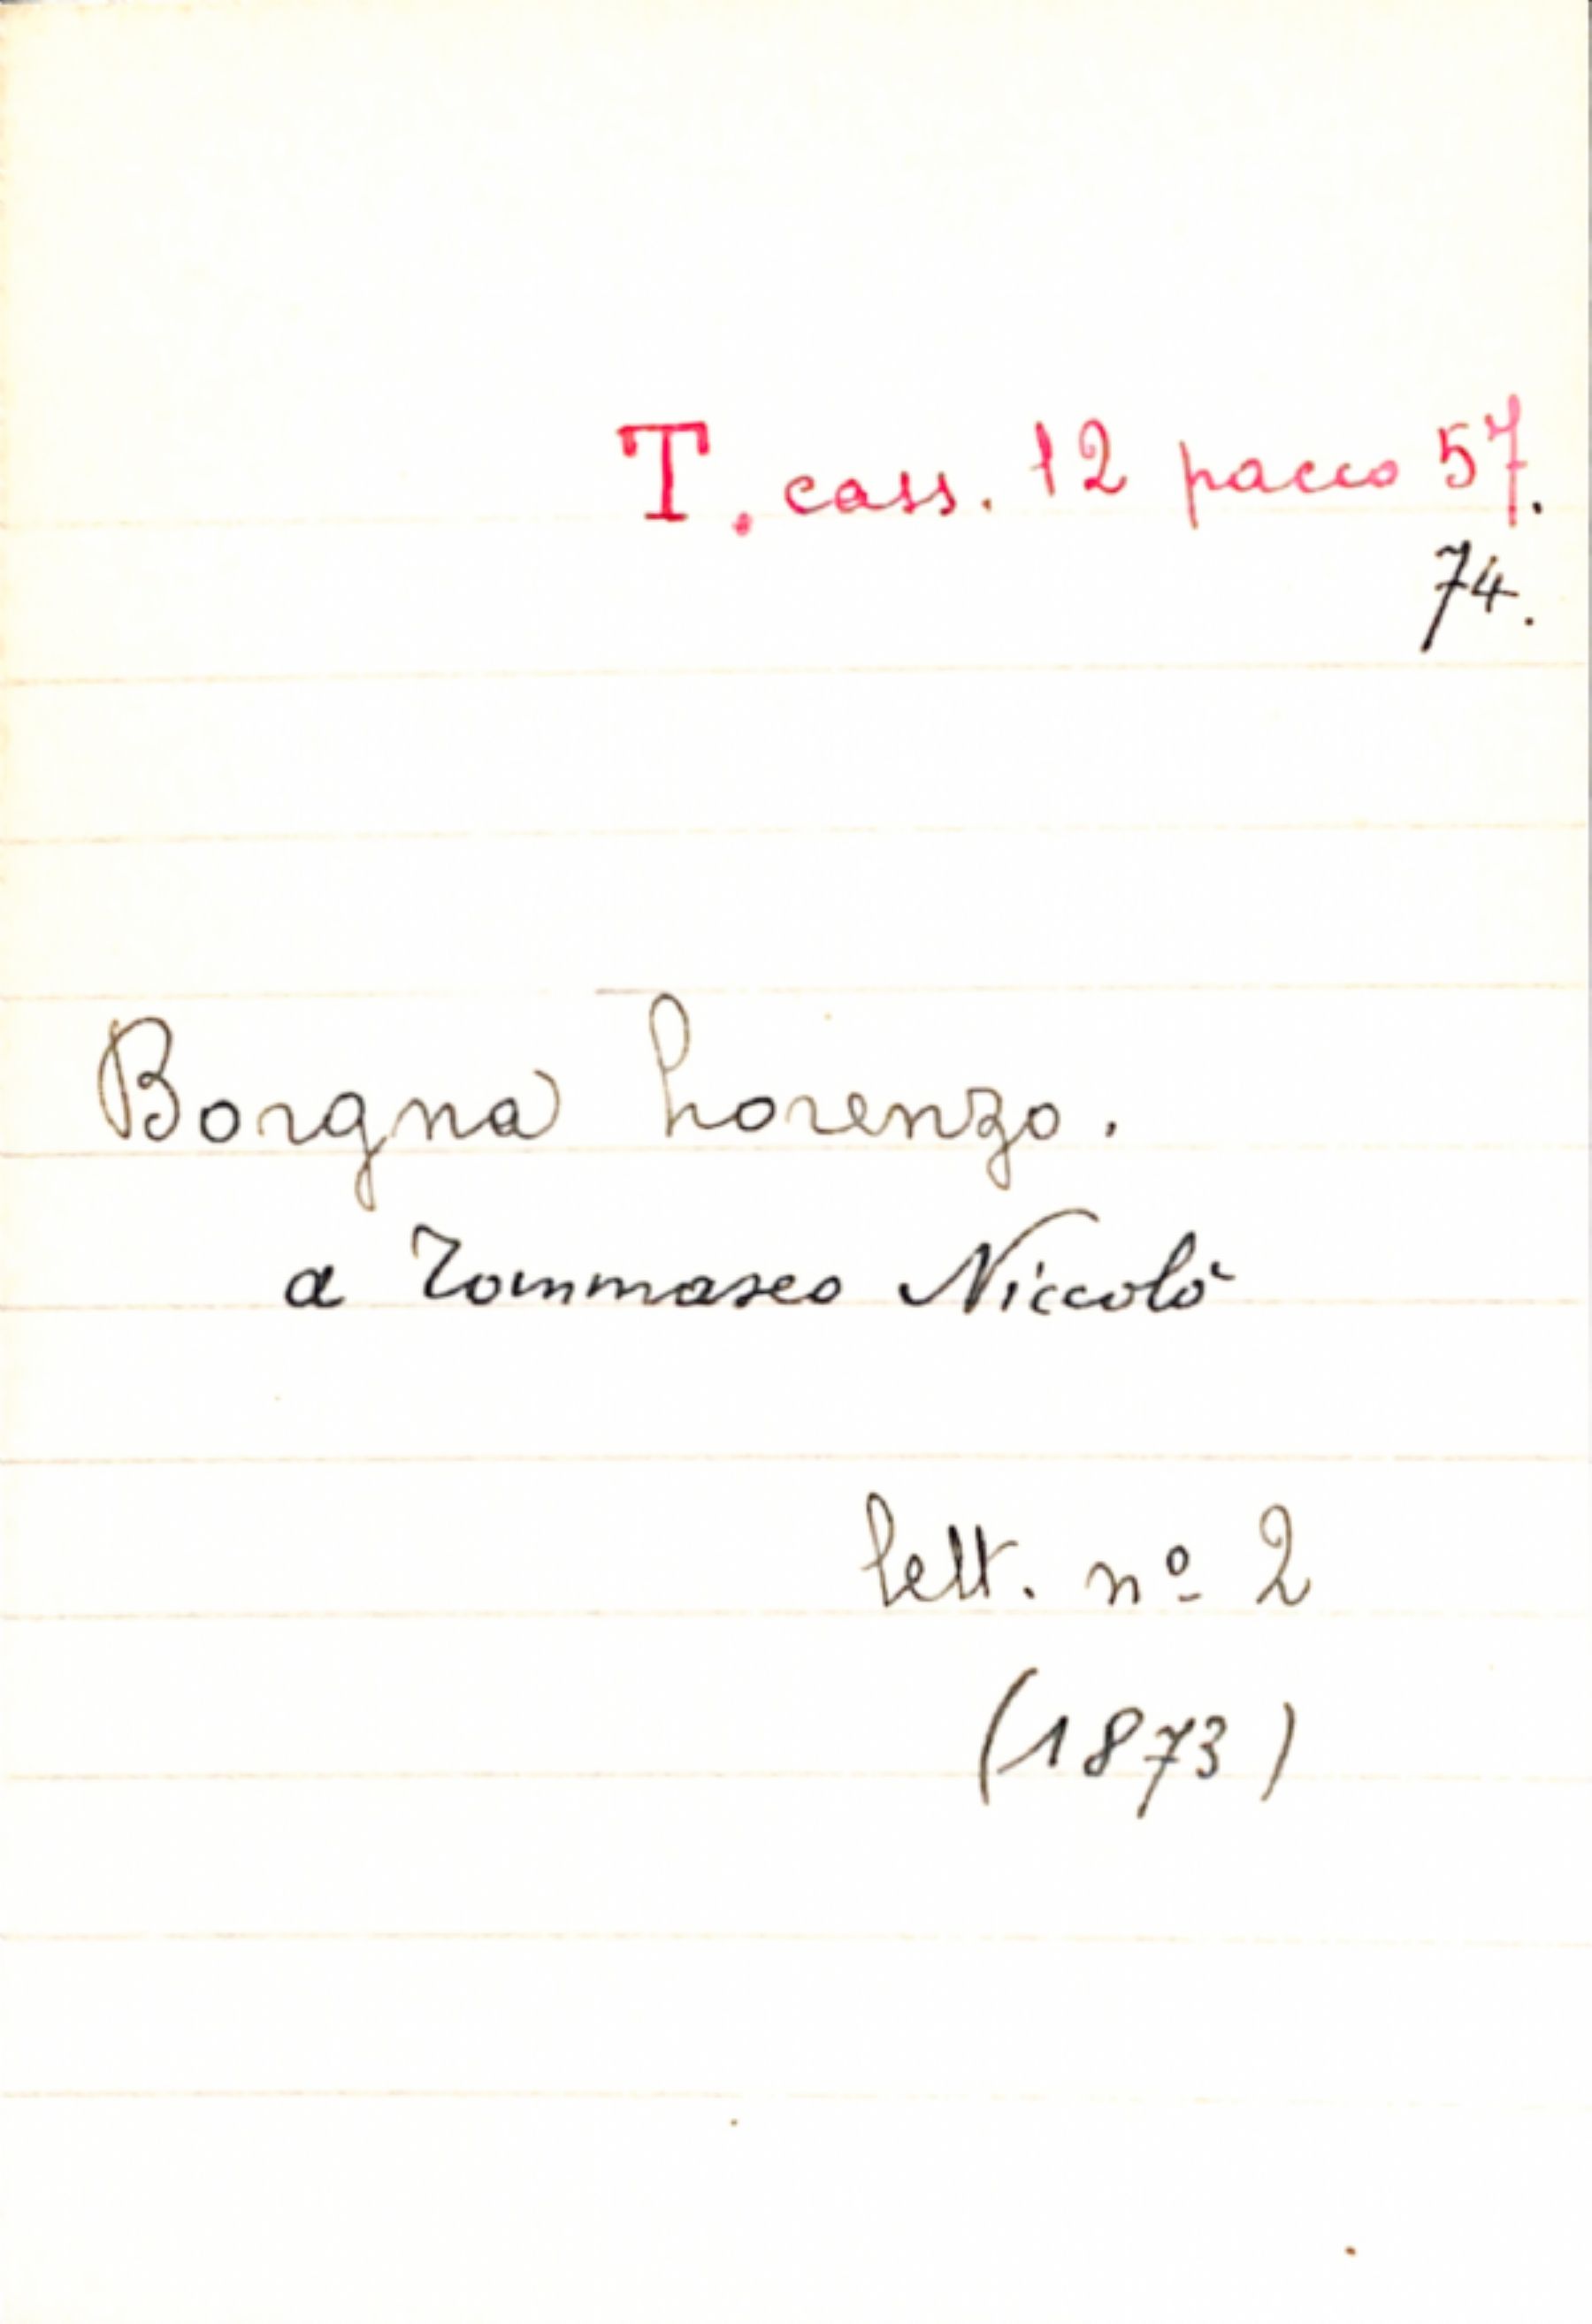 T. cass. 12 pacco 57.
74.
Borgna Lorenzo.
a Tommaseo Niccolò
lett. nº 2
(1873)